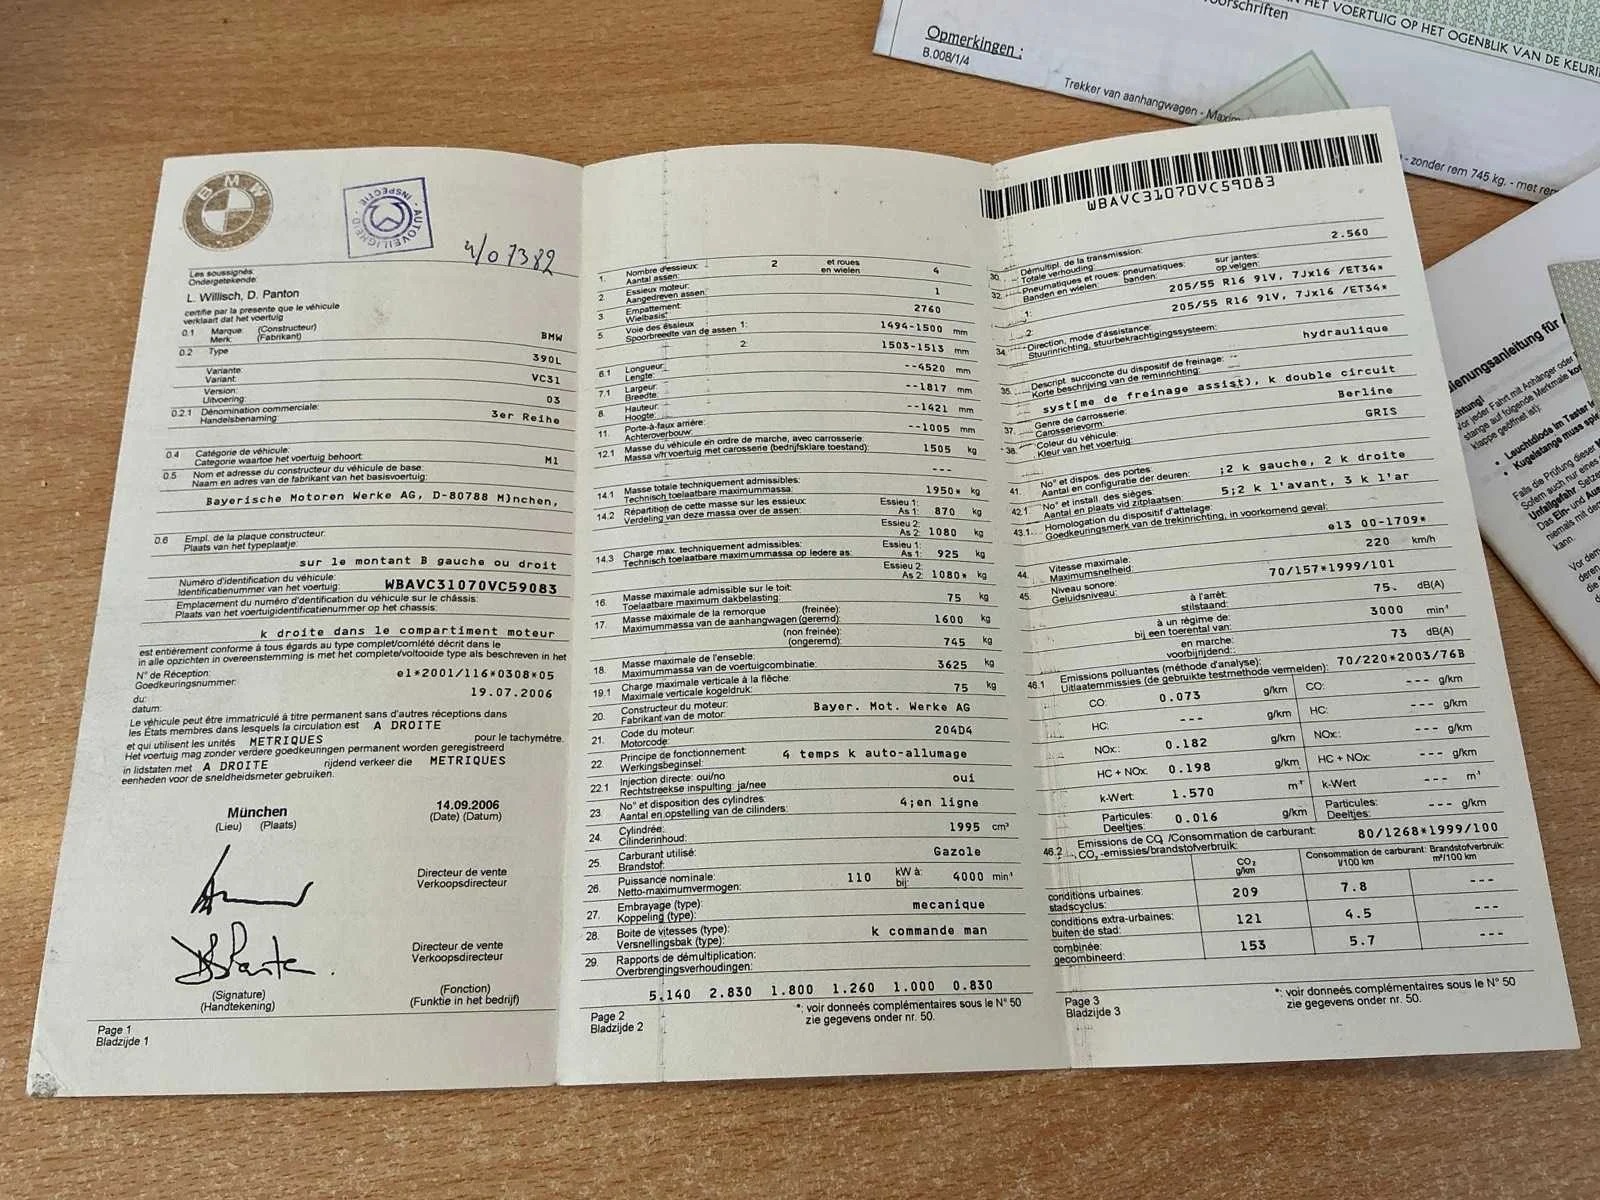 BMW
AUTOVEILIGHEID · INSPECTIE
4/07382
Les soussignés:
Ondergetekende:
L. Willisch, D. Panton
certifie par la presente que le véhicule
verklaart dat het voertuig
0.1 Marque: (Constructeur) BMW
Merk: (Fabrikant)
0.2 Type 390L
Variante: VC31
Variant:
Version: 03
Uitvoering:
0.2.1 Dénomination commerciale: 3er Reihe
Handelsbenaming
0.4 Catégorie de véhicule: M1
Categorie waartoe het voertuig behoort:
0.5 Nom et adresse du constructeur du véhicule de base:
Naam en adres van de fabrikant van het basisvoertuig:
Bayerische Motoren Werke AG, D-80788 M}nchen,
0.6 Empl. de la plaque constructeur:
Plaats van het typeplaatje:
sur le montant B gauche ou droit
Numéro d'identification du véhicule:
Identificatienummer van het voertuig: WBAVC31070VC59083
Emplacement du numéro d'identification du véhicule sur le châssis:
Plaats van het voertuigidentificatienummer op het chassis:
k droite dans le compartiment moteur
est entièrement conforme à tous égards au type complet/comlété décrit dans le
in alle opzichten in overeenstemming is met het complete/voltooide type als beschreven in het
N° de Réception: e1*2001/116*0308*05
Goedkeuringsnummer:
du: 19.07.2006
datum:
Le véhicule peut être immatriculé à titre permanent sans d'autres réceptions dans
les États membres dans lesquels la circulation est A DROITE
et qui utilisent les unités METRIQUES pour le tachymètre.
Het voertuig mag zonder verdere goedkeuringen permanent worden geregistreerd
in lidstaten met A DROITE rijdend verkeer die METRIQUES
eenheden voor de sneldheidsmeter gebruiken.
München 14.09.2006
(Lieu) (Plaats) (Date) (Datum)
Directeur de vente
Verkoopsdirecteur
DSPanton.
Directeur de vente
Verkoopsdirecteur
(Signature) (Fonction)
(Handtekening) (Funktie in het bedrijf)
Page 1
Bladzijde 1
1. Nombre d'essieux: 2 et roues 4
Aantal assen: en wielen
2. Essieux moteur: 1
Aangedreven assen:
3. Empattement: 2760
Wielbasis:
5. Voie des éssieux 1: 1494-1500 mm
Spoorbreedte van de assen
2: 1503-1513 mm
6.1 Longueur: --4520 mm
Lengte:
7.1 Largeur: --1817 mm
Breedte:
8. Hauteur: --1421 mm
Hoogte:
11. Porte-à-faux arrière: --1005 mm
Achteroverbouw:
12.1 Masse du véhicule en ordre de marche, avec carrosserie: 1505 kg
Massa v/h voertuig met carosserie (bedrijfsklare toestand):
---
14.1 Masse totale techniquement admissibles: 1950* kg
Technisch toelaatbare maximummassa:
14.2 Répartition de cette masse sur les essieux: Essieu 1:
Verdeling van deze massa over de assen: As 1: 870 kg
Essieu 2:
As 2: 1080 kg
14.3 Charge max. techniquement admissibles: Essieu 1:
Technisch toelaatbare maximummassa op iedere as: As 1: 925 kg
Essieu 2:
As 2: 1080* kg
16. Masse maximale admissible sur le toit: 75 kg
Toelaatbare maximum dakbelasting:
17. Masse máximale de la remorque (freinée): 1600 kg
Maximummassa van de aanhangwagen (geremd):
(non freinée): 745 kg
(ongeremd):
18. Masse maximale de l'enseble: 3625 kg
Maximummassa van de voertuigcombinatie:
19.1 Charge maximale verticale à la flèche: 75 kg
Maximale verticale kogeldruk:
20. Constructeur du moteur: Bayer. Mot. Werke AG
Fabrikant van de motor:
21. Code du moteur: 204D4
Motorcode:
22. Principe de fonctionnement: 4 temps k auto-allumage
Werkingsbeginsel:
22.1 Injection directe: oui/no oui
Rechtstreekse inspulting: ja/nee
23. No° et disposition des cylindres: 4;en ligne
Aantal en opstelling van de cilinders:
24. Cylindrée: 1995 cm³
Cilinderinhoud:
25. Carburant utilisé: Gazole
Brandstof:
26. Puissance nominale: 110 kW à: 4000 min⁻¹
Netto-maximumvermogen: bij:
27. Embrayage (type): mecanique
Koppeling (type):
28. Boite de vitesses (type): k commande man
Versnellingsbak (type):
29. Rapports de démultiplication:
Overbrengingsverhoudingen:
5.140 2.830 1.800 1.260 1.000 0.830
*: voir donneés complémentaires sous le N° 50
zie gegevens onder nr. 50.
Page 2
Bladzijde 2
WBAVC31070VC59083
30. Démultipl. de la transmission: 2.560
Totale verhouding:
32. Pneumatiques et roues: pneumatiques: sur jantes:
Banden en wielen: banden: op velgen:
1: 205/55 R16 91V, 7Jx16 /ET34*
2: 205/55 R16 91V, 7Jx16 /ET34*
34. Direction, mode d'ássistance: hydraulique
Stuurinrichting, stuurbekrachtigingssysteem:
35. Descript. succoncte du dispositif de freinage: --
Korte beschrijving van de reminrichting:
syst[me de freinage assist), k double circuit
37. Genre de carrosserie: Berline
Carosserievorm:
38. Couleur du véhicule: GRIS
Kleur van het voertuig:
41. No° et dispos. des portes: ;2 k gauche, 2 k droite
Aantal en configuratie der deuren:
42.1 No° et install. des sièges: 5;2 k l'avant, 3 k l'ar
Aantal en plaats vd zitplaatsen:
43.1 Homologation du dispositif d'attelage:
Goedkeuringsmerk van de trekinrichting, in voorkomend geval:
e13 00-1709*
44. Vitesse maximale: 220 km/h
Maximumsnelheid:
45. Niveau sonore: 70/157*1999/101
Geluidsniveau:
à l'arrêt: 75. dB(A)
stilstaand:
à un régime de: 3000 min⁻¹
bij een toerental van:
en marche: 73 dB(A)
voorbijrijdend:
46.1 Emissions polluantes (méthode d'analyse): 70/220*2003/76B
Uitlaatemissies (de gebruikte testmethode vermelden):
CO: 0.073 g/km CO: --- g/km
HC: --- g/km HC: --- g/km
NOx: 0.182 g/km NOx: --- g/km
HC + NOx: 0.198 g/km HC + NOx: --- g/km
k-Wert: 1.570 m⁻¹ k-Wert --- m⁻¹
Particules: 0.016 g/km Particules: --- g/km
Deeltjes: Deeltjes:
46.2 Emissions de CO₂ /Consommation de carburant: 80/1268*1999/100
CO₂-emissies/brandstofverbruik:
CO₂ Consommation de carburant: Brandstofverbruik:
g/km l/100 km m³/100 km
conditions urbaines: 209 7.8 ---
stadscyclus:
conditions extra-urbaines: 121 4.5 ---
buiten de stad:
combinée: 153 5.7 ---
gecombineerd:
*: voir donneés complémentaires sous le N° 50
zie gegevens onder nr. 50.
Page 3
Bladzijde 3
HET VOERTUIG OP HET OGENBLIK VAN DE KEURI
voorschriften
Opmerkingen :
B.008/1/4
Trekker van aanhangwagen - Maxim
- zonder rem 745 kg. - met rem
ienungsanleitung für
chtung!
Vor jeder Fahrt mit Anhänger oder
stange auf folgende Merkmale kon
klappe geöffnet ist):
• Leuchtdiode im Taster
• Kugelstange muss spie
Falls die Prüfung dieser
Sofern auch nur eines
Unfallgefahr
Das Ein- und Aus
niemals mit dem
kann.
Vor dem
deren
die